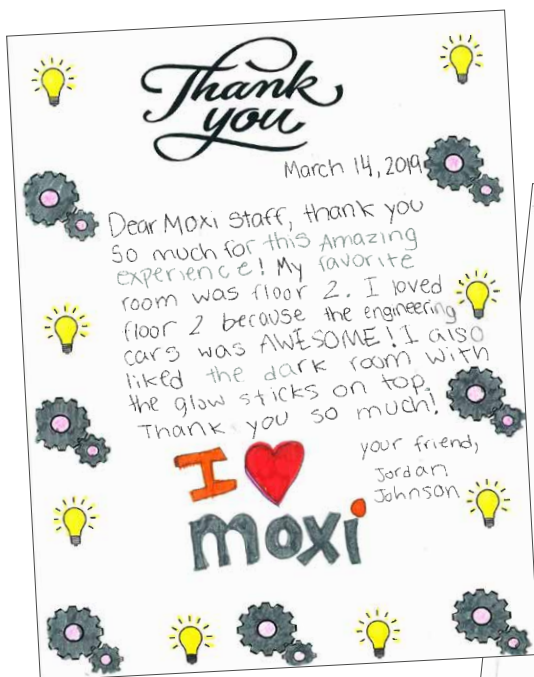 Thank
you
March 14, 2019
Dear Moxi Staff, thank you
So much for this Amazing
experience! My favorite
room was floor 2. I loved
floor 2 because the engineering
cars was AWESOME! I also
liked the dark room with
the glow sticks on top.
Thank you so much!
your friend,
Jordan
Johnson
I
moxi